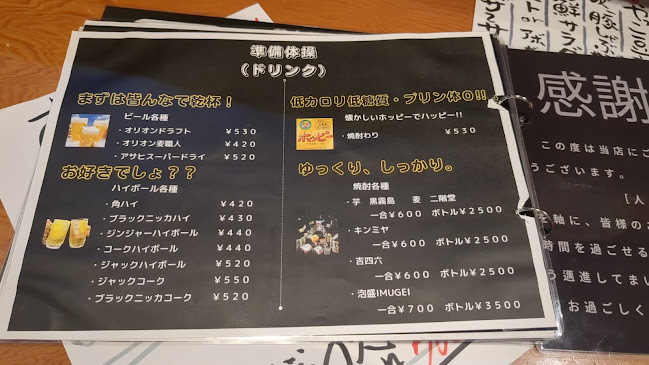 準備体操
(ドリンク)
まずは皆んなで乾杯！
ビール各種
・オリオンドラフト ￥530
・オリオン麦職人 ￥420
・アサヒスーパードライ ￥520
お好きでしょ？？
ハイボール各種
・角ハイ ￥420
・ブラックニッカハイ ￥430
・ジンジャーハイボール ￥440
・コークハイボール ￥440
・ジャックハイボール ￥520
・ジャックコーク ￥550
・ブラックニッカコーク ￥520
低カロリ低糖質・プリン体0!!
懐かしいホッピーでハッピー!!
ホッピー
・焼酎わり ￥530
ゆっくり、しっかり。
焼酎各種
・芋 黒霧島 麦 二階堂
一合￥600 ボトル￥2500
・キンミヤ
一合￥600 ボトル￥2500
・吉四六
一合￥600 ボトル￥2500
・泡盛IMUGEI
一合￥700 ボトル￥3500
感謝
この度は当店にご
うございます。
【人
軸に、皆様のお
時間を過ごせる
う邁進してまい
お過ごしく